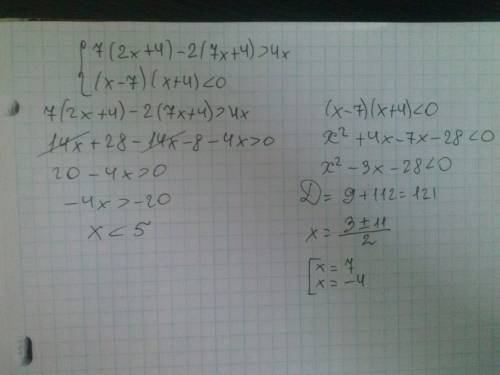 { 7(2x+4)-2(7x+4)>4x
(x-7)(x+4)<0
7(2x+4)-2(7x+4)>4x
14x+28-14x-8-4x>0
20-4x>0
-4x>-20
x<5
(x-7)(x+4)<0
x²+4x-7x-28<0
x²-3x-28<0
D=9+112=121
x=(3±11)/2
[ x=7
x=-4